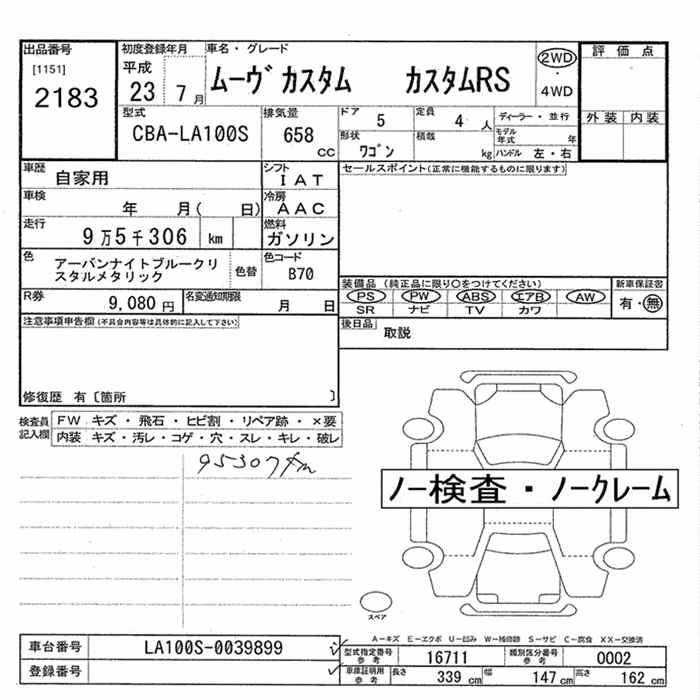 出品番号
[1151]
2183
初度登録年月
平成
23 7月
車名・グレード
ムーヴカスタム カスタムRS
2WD
・
4WD
評価点
外装 内装
型式
CBA-LA100S
排気量
658
cc
ドア 5
定員 4 人
ディーラー・並行
形状
ワゴン
積載
kg
モデル年式 年
ハンドル 左・右
車歴
自家用
シフト
IAT
セールスポイント(正常に機能するものに限ります)
車検
年 月( 日)
冷房
AAC
走行
9万5千306 km
燃料
ガソリン
色
アーバンナイトブルークリ
スタルメタリック
色替
色コード
B70
装備品 (純正品に限り○をつけてください)
PS PW ABS エアB AW
SR ナビ TV カワ
新車保証書
有・無
R券
9,080 円
名変通知期限
月 日
後日品
取説
注意事項申告欄(不具合内容等は具体的に記入して下さい)
修復歴 有〔箇所 〕
検査員
記入欄
FW キズ・飛石・ヒビ割・リペア跡・×要
内装 キズ・汚レ・コゲ・穴・スレ・キレ・破レ
95307km
ノー検査・ノークレーム
スペア
A-キズ E-エクボ U-凹み W-補修跡 S-サビ C-腐食 XX-交換済
車台番号
LA100S-0039899
登録番号
型式指定番号
参考
16711
類別区分番号
参考
0002
車庫証明用
参考
長さ 339 cm
幅 147 cm
高さ 162 cm